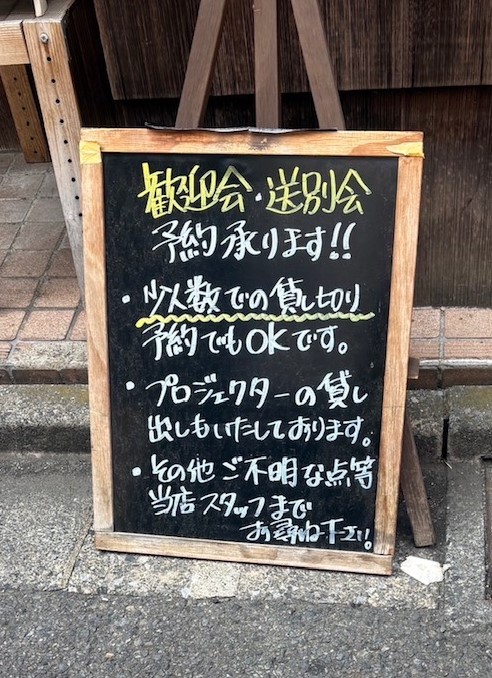 歓迎会・送別会
予約承ります!!
・少人数での貸し切り
予約でもOKです。
・プロジェクターの貸し
出しもいたしております。
・その他ご不明な点等
当店スタッフまで
お尋ね下さい!